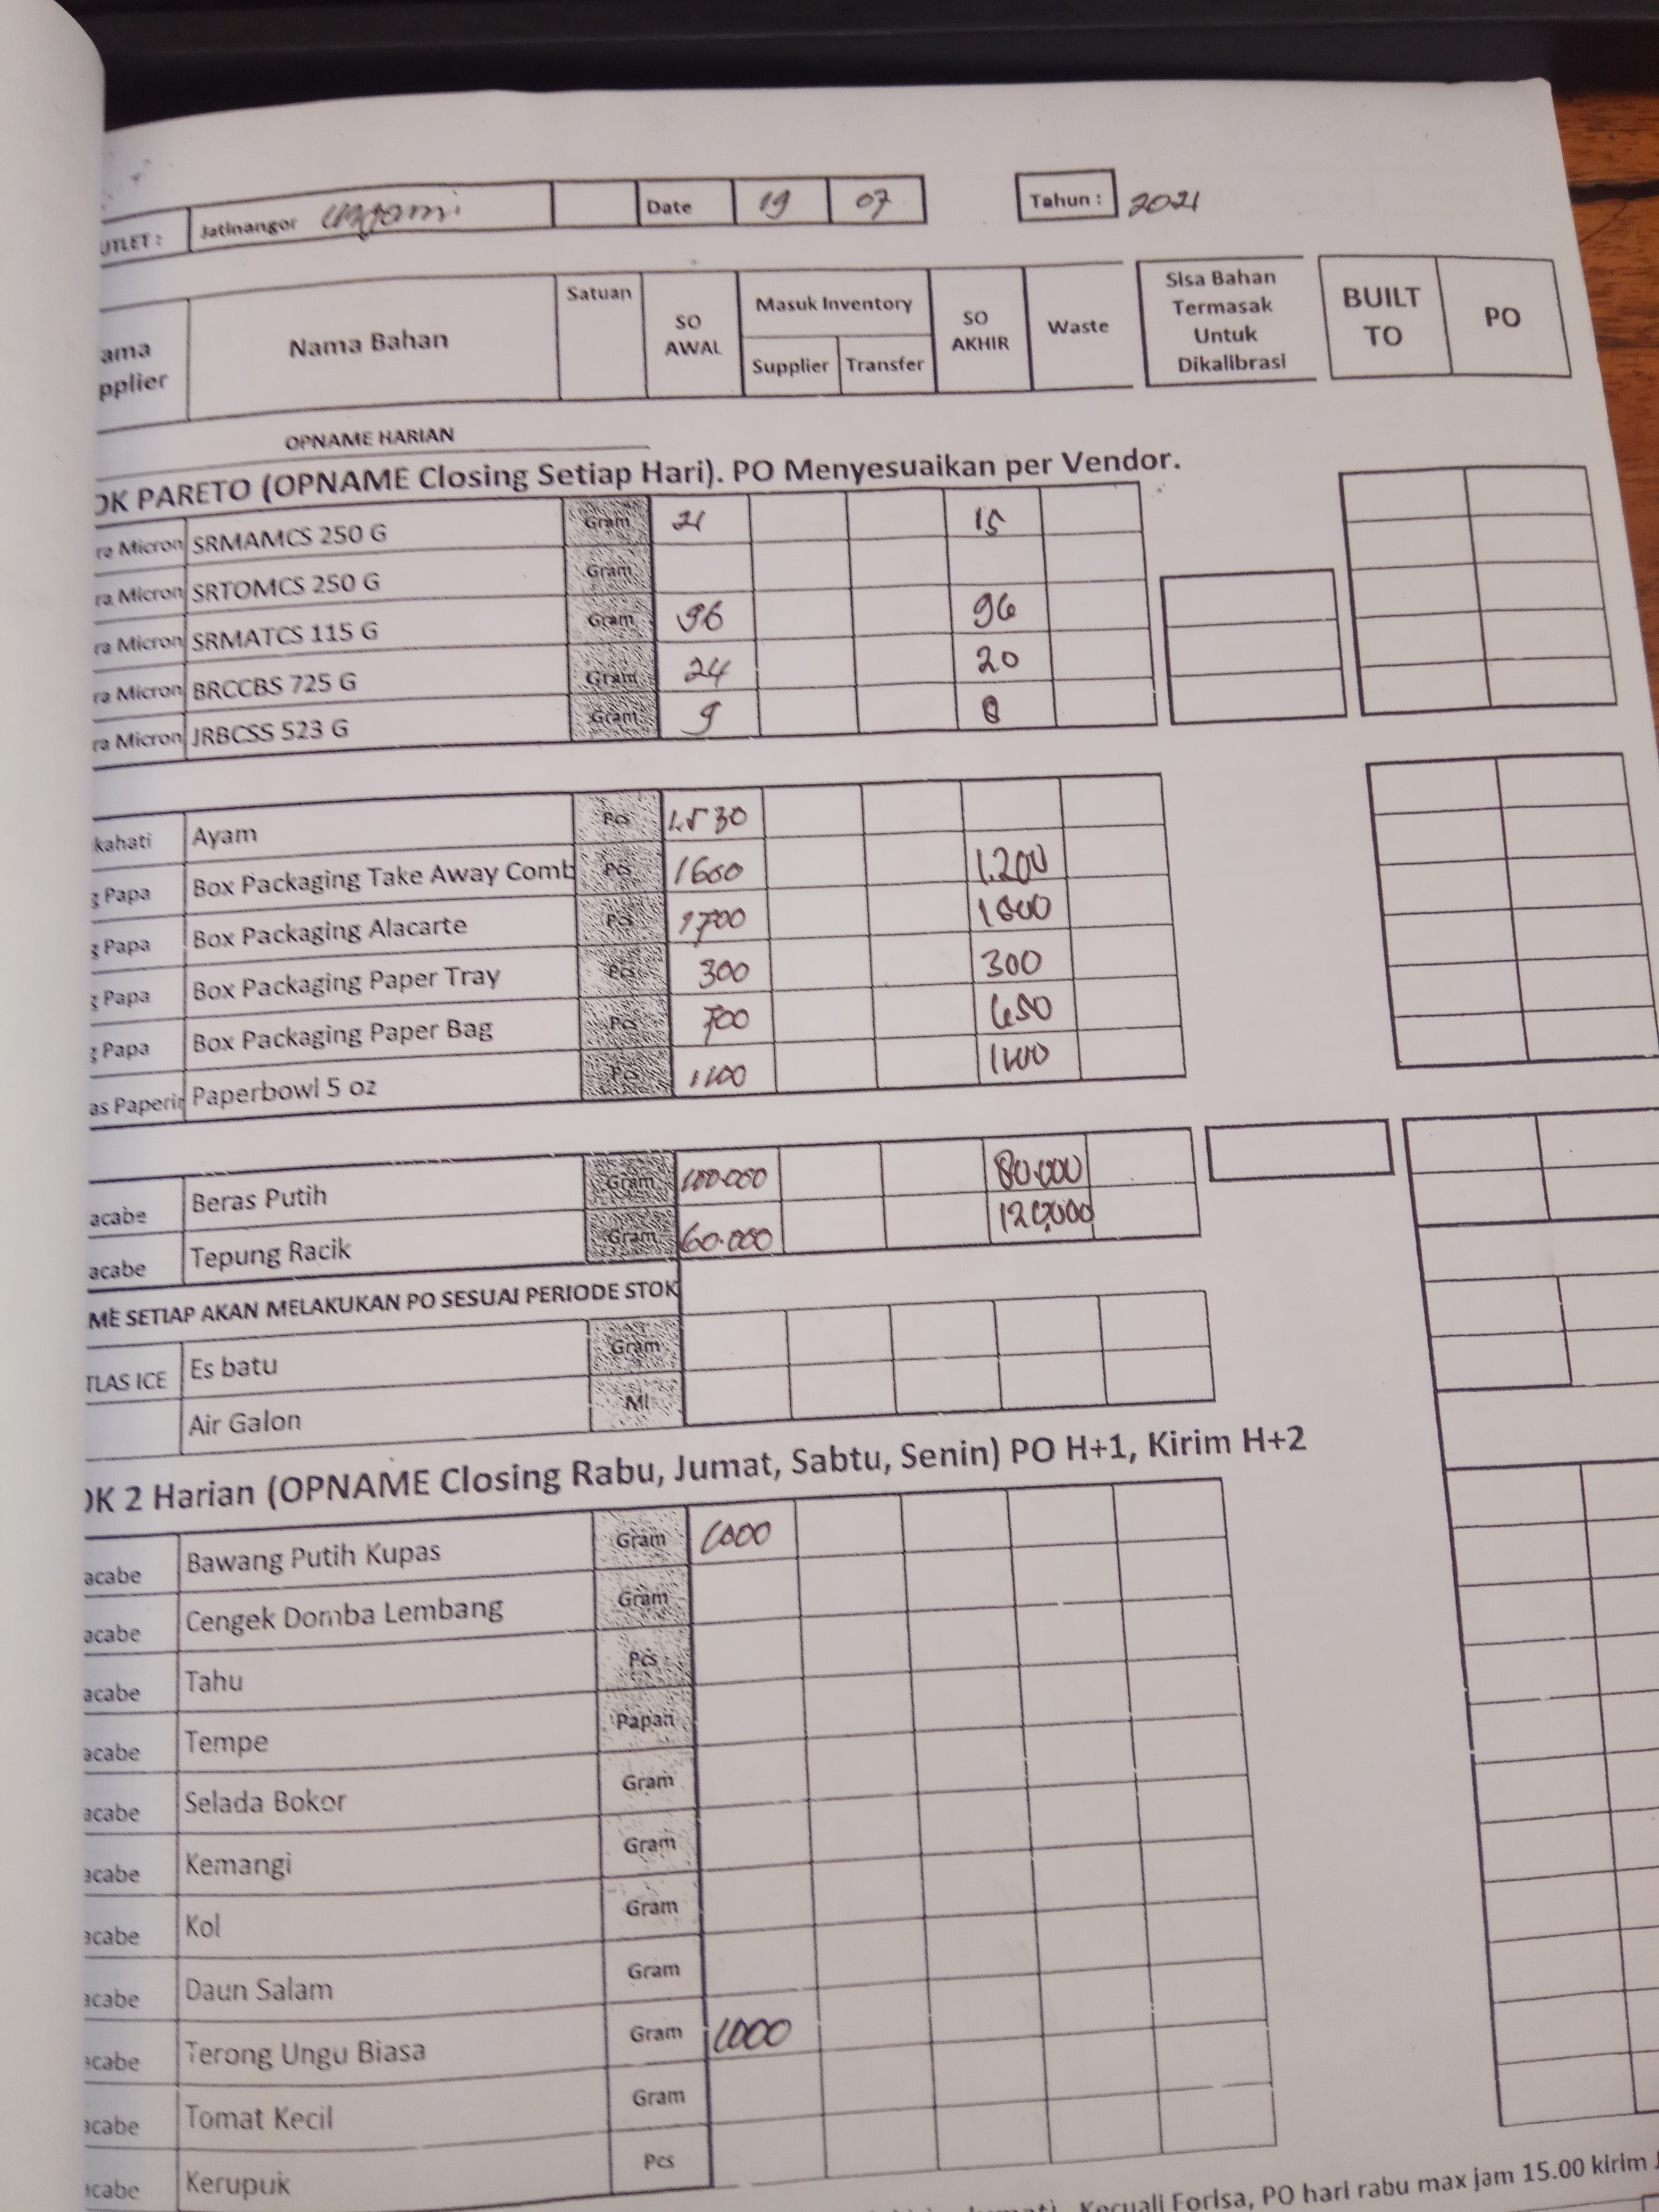 UTLET : Jatinangor Date 19 07 Tahun : 2021
ama pplier Nama Bahan Satuan SO AWAL Masuk Inventory Supplier Transfer SO AKHIR Waste Sisa Bahan Termasak Untuk Dikalibrasi BUILT TO PO
OPNAME HARIAN
OK PARETO (OPNAME Closing Setiap Hari). PO Menyesuaikan per Vendor.
ra Micron SRMAMCS 250 G Gram 21 15
ra Micron SRTOMCS 250 G Gram
ra Micron SRMATCS 115 G Gram 96 96
ra Micron BRCCBS 725 G Gram 24 20
ra Micron JRBCSS 523 G Gram 9 8
kahati Ayam Pcs 1.530
g Papa Box Packaging Take Away Comb Pcs 1600 1.200
g Papa Box Packaging Alacarte Pcs 1700 1600
g Papa Box Packaging Paper Tray Pcs 300 300
g Papa Box Packaging Paper Bag Pcs 700 650
as Paperin Paperbowl 5 oz Pcs 1100 1100
acabe Beras Putih Gram 100.000 80.000
acabe Tepung Racik Gram 60.000 120,000
ME SETIAP AKAN MELAKUKAN PO SESUAI PERIODE STOK
TLAS ICE Es batu Gram
Air Galon Ml
OK 2 Harian (OPNAME Closing Rabu, Jumat, Sabtu, Senin) PO H+1, Kirim H+2
acabe Bawang Putih Kupas Gram 1000
acabe Cengek Domba Lembang Gram
acabe Tahu Pcs
acabe Tempe Papan
acabe Selada Bokor Gram
acabe Kemangi Gram
acabe Kol Gram
acabe Daun Salam Gram
acabe Terong Ungu Biasa Gram 1000
acabe Tomat Kecil Gram
acabe Kerupuk Pcs
Kecuali Forisa, PO hari rabu max jam 15.00 kirim J